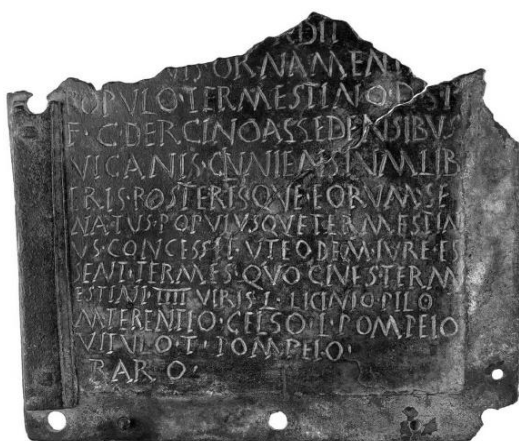 RDII
IS·ORNAMEN
POPULO·TERMESTINO·D·S·
F·C·DERCINOASSEDENSIBUS
VICANIS·CLUNIENSIUM·LIB
ERIS·POSTERISQUE·EORUM·SE
NATUS·POPULUSQUE·TERMESTIN
US·CONCESSIT·UT EODEM·IURE·ES
SENT·TERMES·QUO CIVES·TERM
ESTINI·IIII VIRIS·L·LICINIO·PILO
M·TERENTIO·CELSO·L·POMPEIO
VITULO·T·POMPEIO·
RARO·